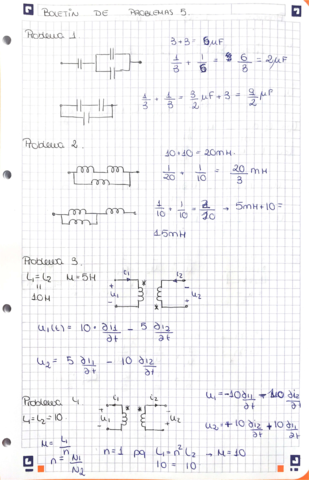 BOLETÍN DE PROBLEMAS 5.
Problema 1
3+3 = 6μF
1/3 + 1/6 = 6/3 = 2μF
1/3 + 1/3 = 3/2 μF + 3 = 9/2 μF
Problema 2.
10+10 = 20mH.
1/20 + 1/10 = 20/3 mH
1/10 + 1/10 = 2/10 → 5mH + 10 =
15mH
Problema 3.
L1 = L2 M = 5H
"
10H
i1 i2
+ - u1 u2
u1(t) = 10 · ∂i1/∂t - 5 ∂i2/∂t
u2 = 5 ∂i1/∂t - 10 ∂i2/∂t
Problema 4.
L1 = L2 = 10
i1 i2
+ - u1 u2
u1 = -10 ∂i1/∂t - 10 ∂i2/∂t
u2 = +10 ∂i2/∂t + 10 ∂i1/∂t
M = L1/n
n = N1/N2
n = 1 pq L1 = n² L2 → M = 10
10 = 10